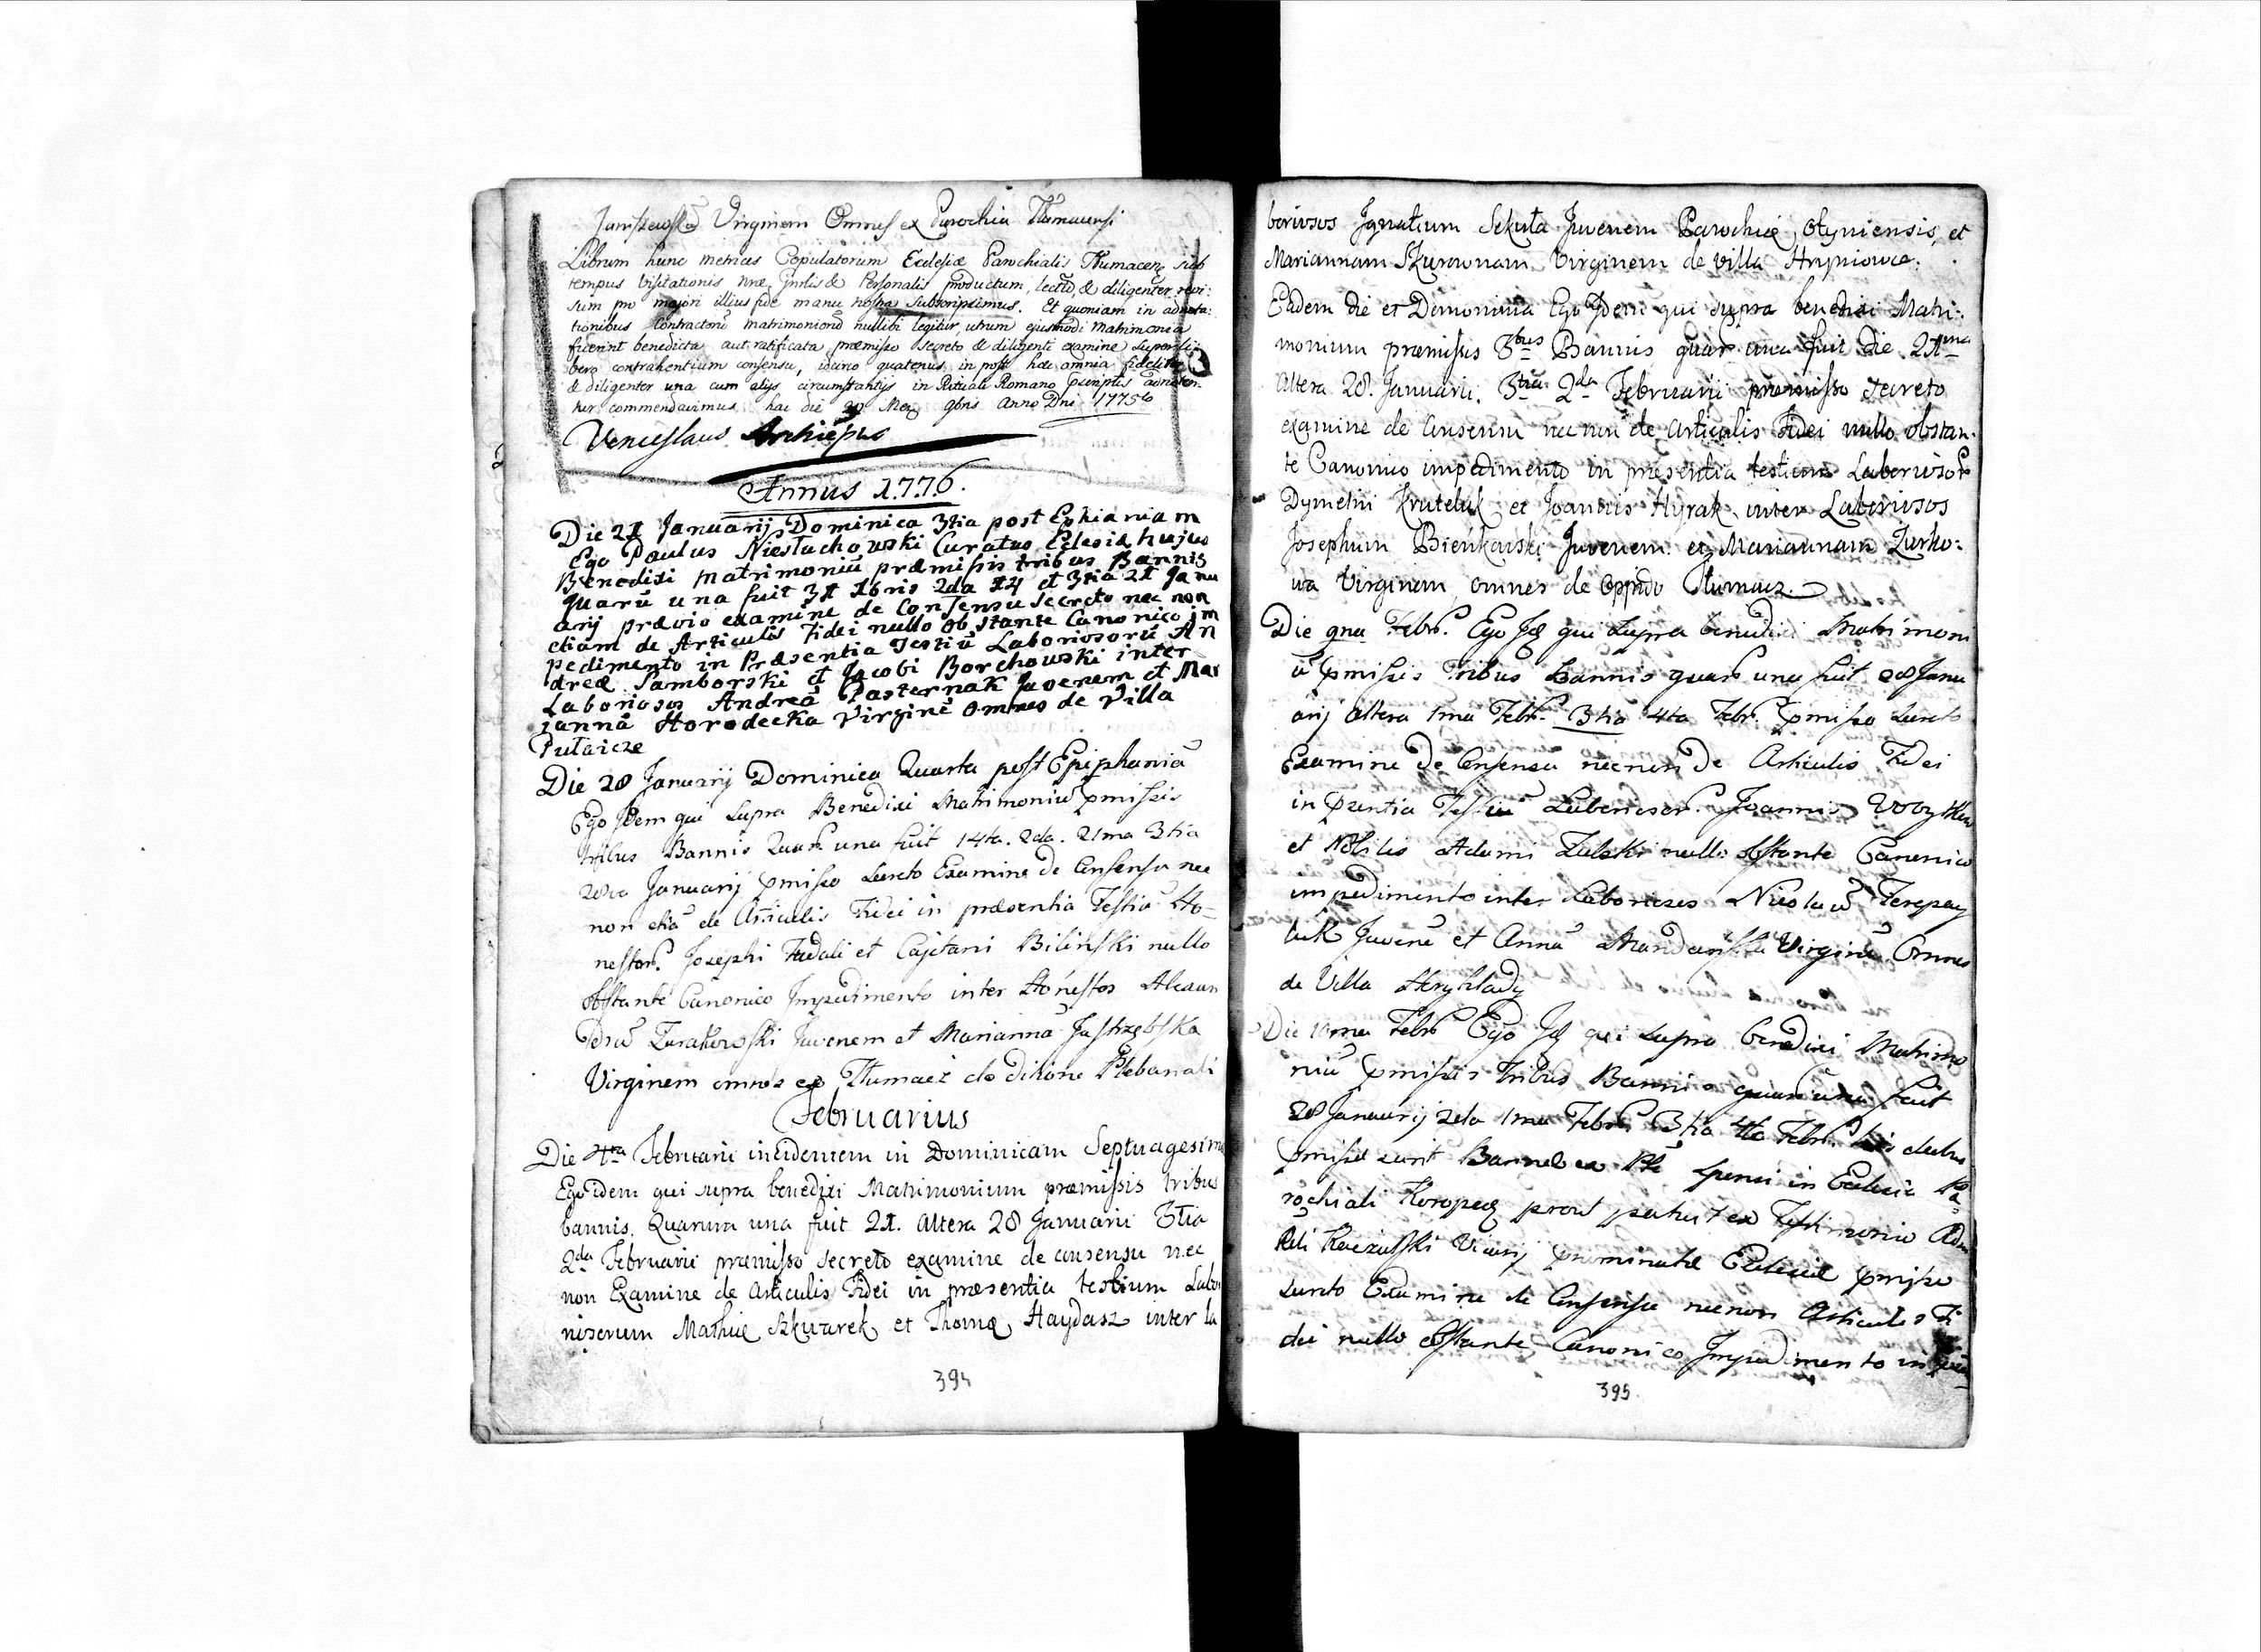 Juniszewską Virginem Omnes ex Parochia Tłumacensi
Librum hunc metrices Copulatorum Ecclesiæ Parochialis Tłumacen, sub
tempus visitationis nræ Gnrlis & Personalis productum, lectũ, & diligenter revi:
sum pro majori illius fide manu nostra subscripsimus. Et quoniam in adnota:
tionibus contractorũ matrimoniorũ nullibi legitur, utrum ejusmodi matrimonia
fuerint benedicta aut ratificata, præmisso secreto & diligenti examine super li:
bero contrahentium consensu, idcirco quatenus in post hæc omnia fideliter
& diligenter una cum alijs circumstantijs in Rituali Romano præscriptis adnoten:
tur commendavimus hac die Mens 9bris Anno Dni 1775to
Venceslaus Archiepus
Annus 1776.
Die 21 Januarij Dominica 3tia post Ephianiam
Ego Paulus Niesłuchowski Curatus Eclesiæ hujus
Benedixi Matrimoniũ præmissis tribus Bannis
quarũ una fuit 31 Xbris 2da 14 et 3tia 21 Janu
arij prævio examine de Consensu secreto nec non
etiam de Articulis Fidei nullo obstante Canonico im
pedimento in Præsentia Testiũ Laboriosorũ An
dreæ Samborski et Jacobi Borchowski inter
Laboriosos Andreã Pasternak Juvenem et Mar
jannã Horodecka Virginẽ omnes de Villa
Puław̃icze
Die 28 Januarij Dominica Quarta post Epiphaniã
Ego Idem qui supra Benedixi Matrimoniũ pmissis
tribus Bannis Quar. una fuit 14ta. 2da. 21ma 3tia
28va Januarij pmisso secreto Examine de Consensu nec
non etiã de Articulis Fidei in præsentia Testiũ Ho-
nestor. Josephi Fadali et Cajetani Bilinski nullo
obstante Canonico Impedimento inter Honestos Alexan
drũ Zurakowski Juvenem et Mariannã Jastrzębska
Virginem omnes ex Tłumacz de ditione Plebanali
Februarius
Die 4ta Februarii incidentem in Dominicam Septuagesima
Ego idem qui supra benedixi Matrimonium præmissis tribus
bannis. Quarum una fuit 21. altera 28 Januarii 3tia
2da Februarii præmisso secreto examine de consensu nec
non Examine de articulis Fidei in præsentia testium Labo
riosorum Mathiæ Szkwarek et Thomæ Haydasz inter la
394
boriosos Ignatium Sekuła Juvenem Parochiæ Otyniensis, et
Mariannam Skurownam Virginem de villa Hryniowce.
Eadem die et Dominica Ego Idem qui supra benedixi Matri:
monium præmissis 3bus Bannis quar. una fuit die 21ma
altera 28. Januarii. 3tia 2da Februarii præmisso secreto
examine de consensu nec non de articulis Fidei nullo obstan:
te Canonico impedimento in præsentia testium Laborioso
Dymetri Krutełuk et Joannis Hyrak inter Laboriosos
Josephum Bieńkawski Juvenem et Mariannam Zurko:
wa Virginem, omnes de oppido Tłumacz.
Die 9na Febr. Ego Id. qui supra benedixi Matrimoni
ũ pmissis Tribus Bannis quar. una fuit 28 Janu
arij altera 1ma Febr. 3tia 4ta Febr. pmisso secreto
Examine De Consensu necnon De Articulis Fidei
in psentia Testiũ Laborioser. Joannis
et Nobilis Adami Zaleski nullo obstante Canonico
impedimento inter Laboriosos Nicolaũ
luk Juvenẽ et Annã Virginẽ Omnes
de Villa
Die 10ma Febr. Ego Id. qui supra benedixi Matrimo
niũ pmissis Tribus Bannis quarũ una fuit
28 Januarij 2da 1ma Febr. 3tia 4ta Febr.
pmissi sunt Banna ex Pte Sponsi in Eclesia Pa
rochiali prout patuit ex Testimonio
Vicarij pnominatæ Eclesiæ pmisso
secreto Examine de Consensu necnon Articulis Fi
dei nullo obstante Canonico Impedimento in
395.